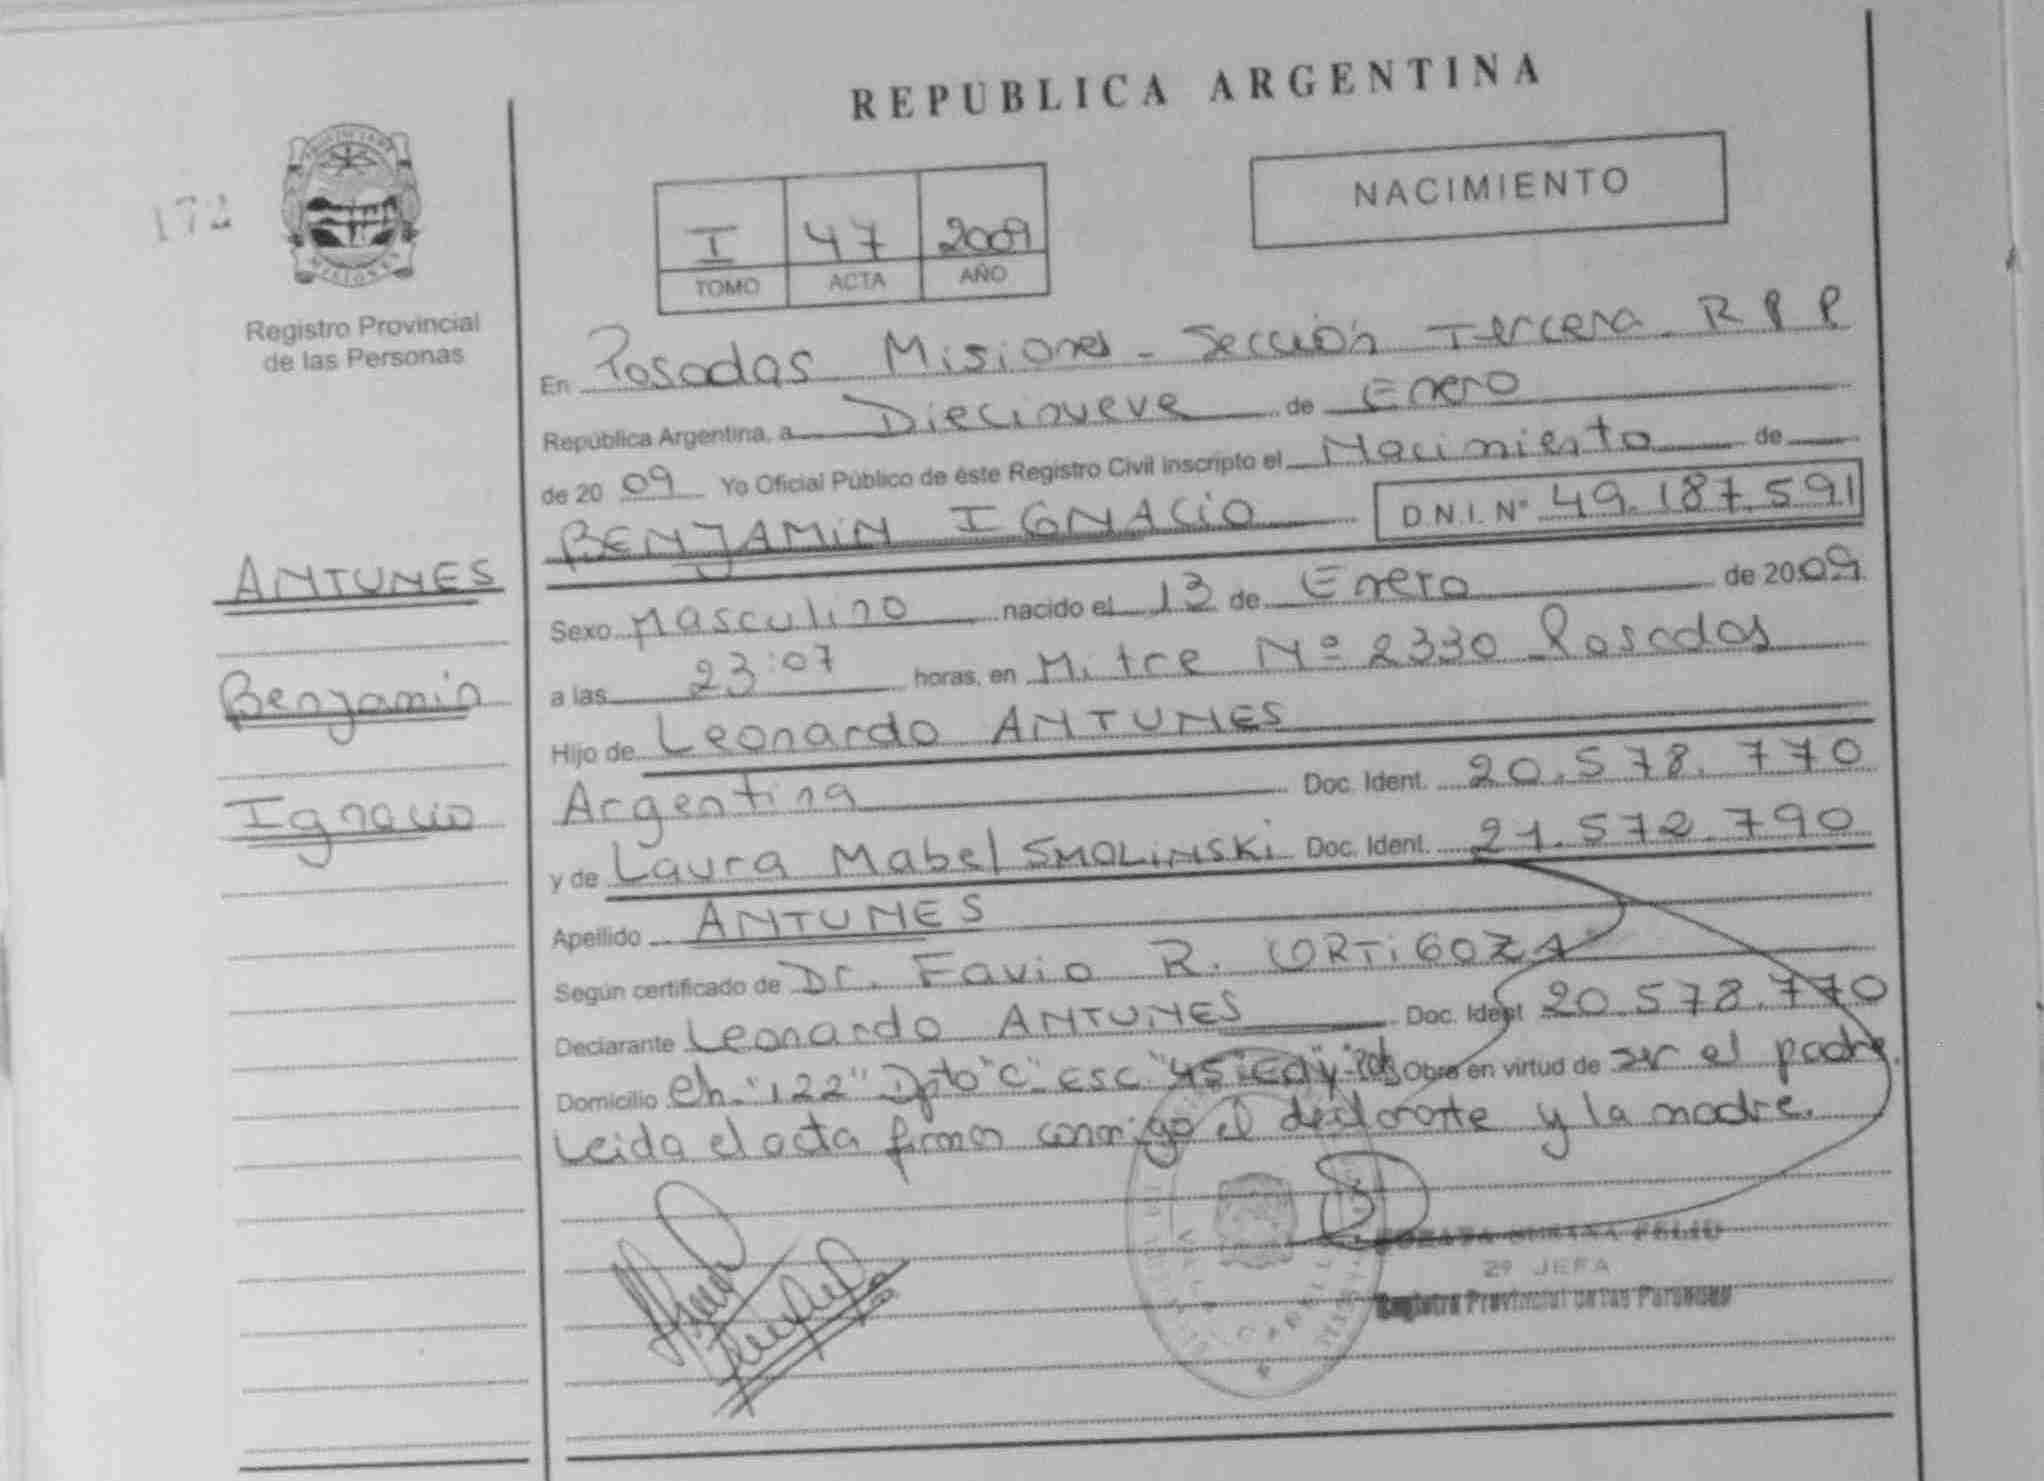 REPUBLICA ARGENTINA
172
PROVINCIA DE
MISIONES
Registro Provincial
de las Personas
NACIMIENTO
I 47 2009
TOMO ACTA AÑO
En Posadas Misiones - Sección Tercera R P P
República Argentina, a Diecinueve de Enero
de 20 09 Yo Oficial Público de éste Registro Civil inscripto el Nacimiento de
BENJAMIN IGNACIO D.N.I. Nº 49.187.591
ANTUNES
Benjamin
Ignacio
Sexo Masculino nacido el 13 de Enero de 2009
a las 23:07 horas, en Mitre Nº 2330 Posadas
Hijo de Leonardo ANTUNES
Argentina Doc. Ident. 20.578.770
y de Laura Mabel SMOLINSKI Doc. Ident. 21.572.790
Apellido ANTUNES
Según certificado de Dr. Favio R. CORTIGOZA
Declarante Leonardo ANTUNES Doc. Ident 20.578.770
Domicilio Ch. "122" Dpto "C" esc "45" Obra en virtud de ser el padre.
Leida el acta firman conmigo el declarante y la madre.
2º JEFA
Registro Provincial de las Personas